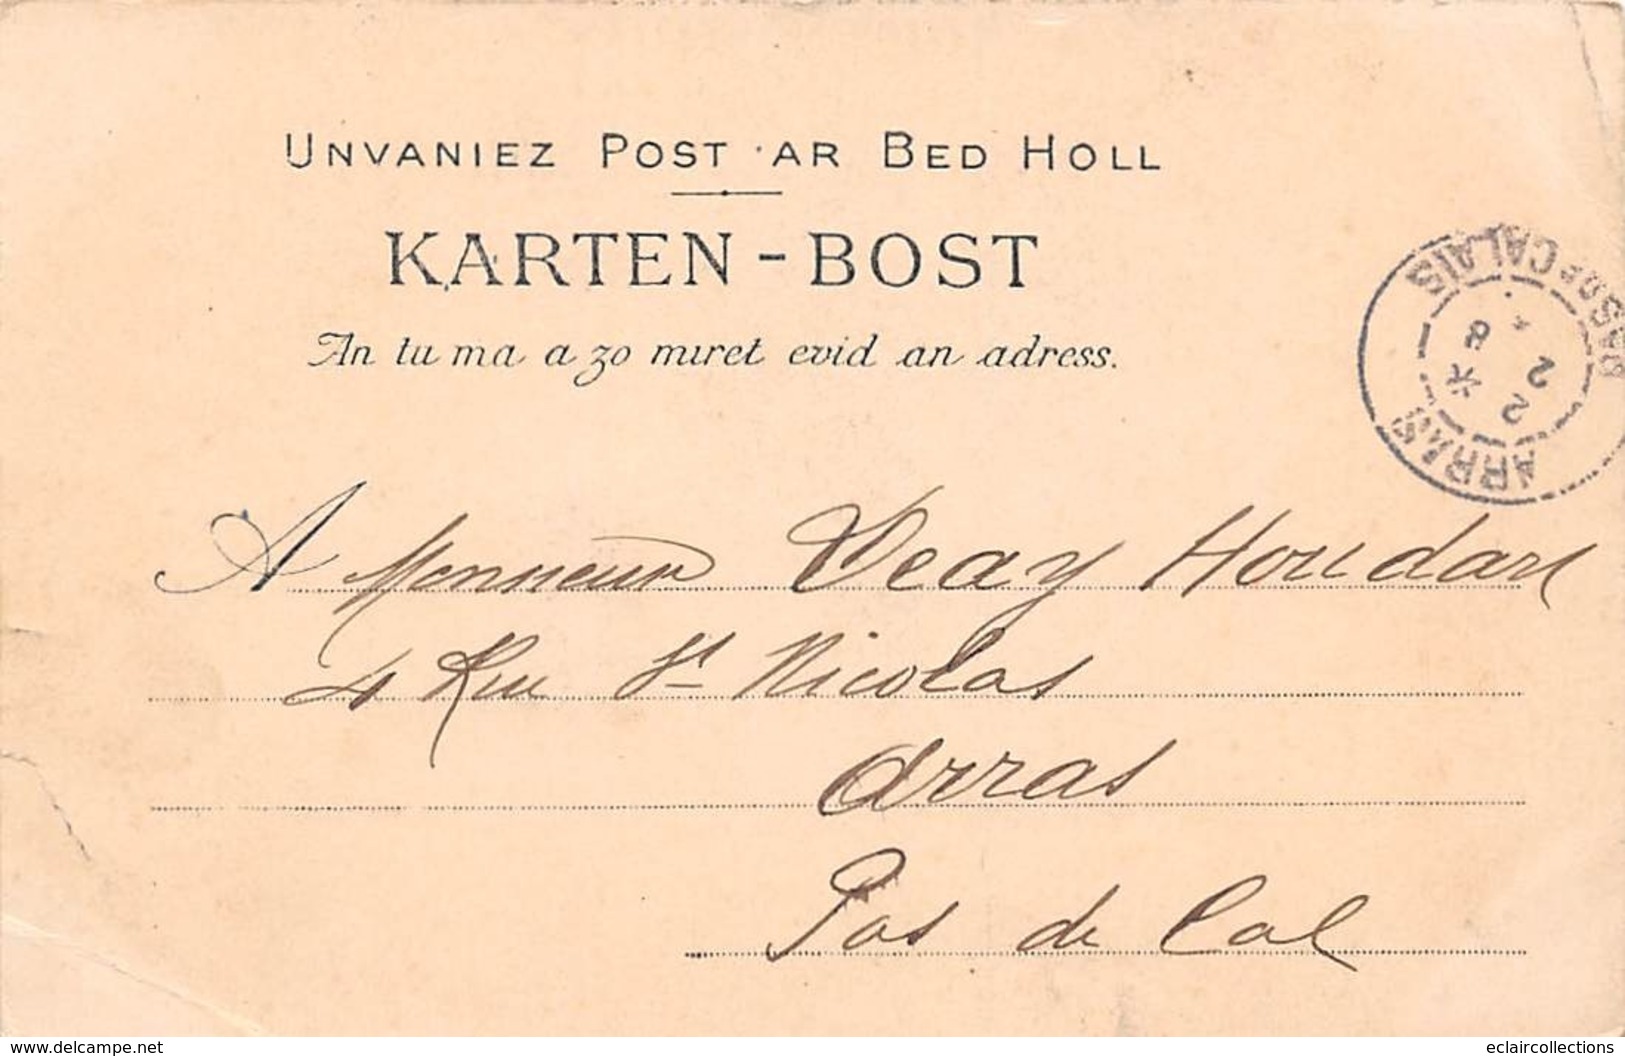 UNVANIEZ POST AR BED HOLL
KARTEN-BOST
An tu ma a zo miret evid an adress.
PAS-DE-CALAIS
ARRAS
8
2
2
A Monsieur Deay Houdart
4 Rue St Nicolas
Arras
Pas de Cal
www.delcampe.net
eclaircollections